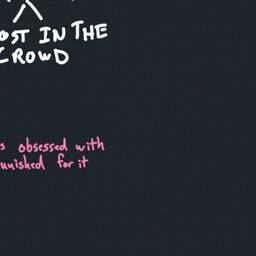 OST IN THE
CROWD
s obsessed with
unished for it